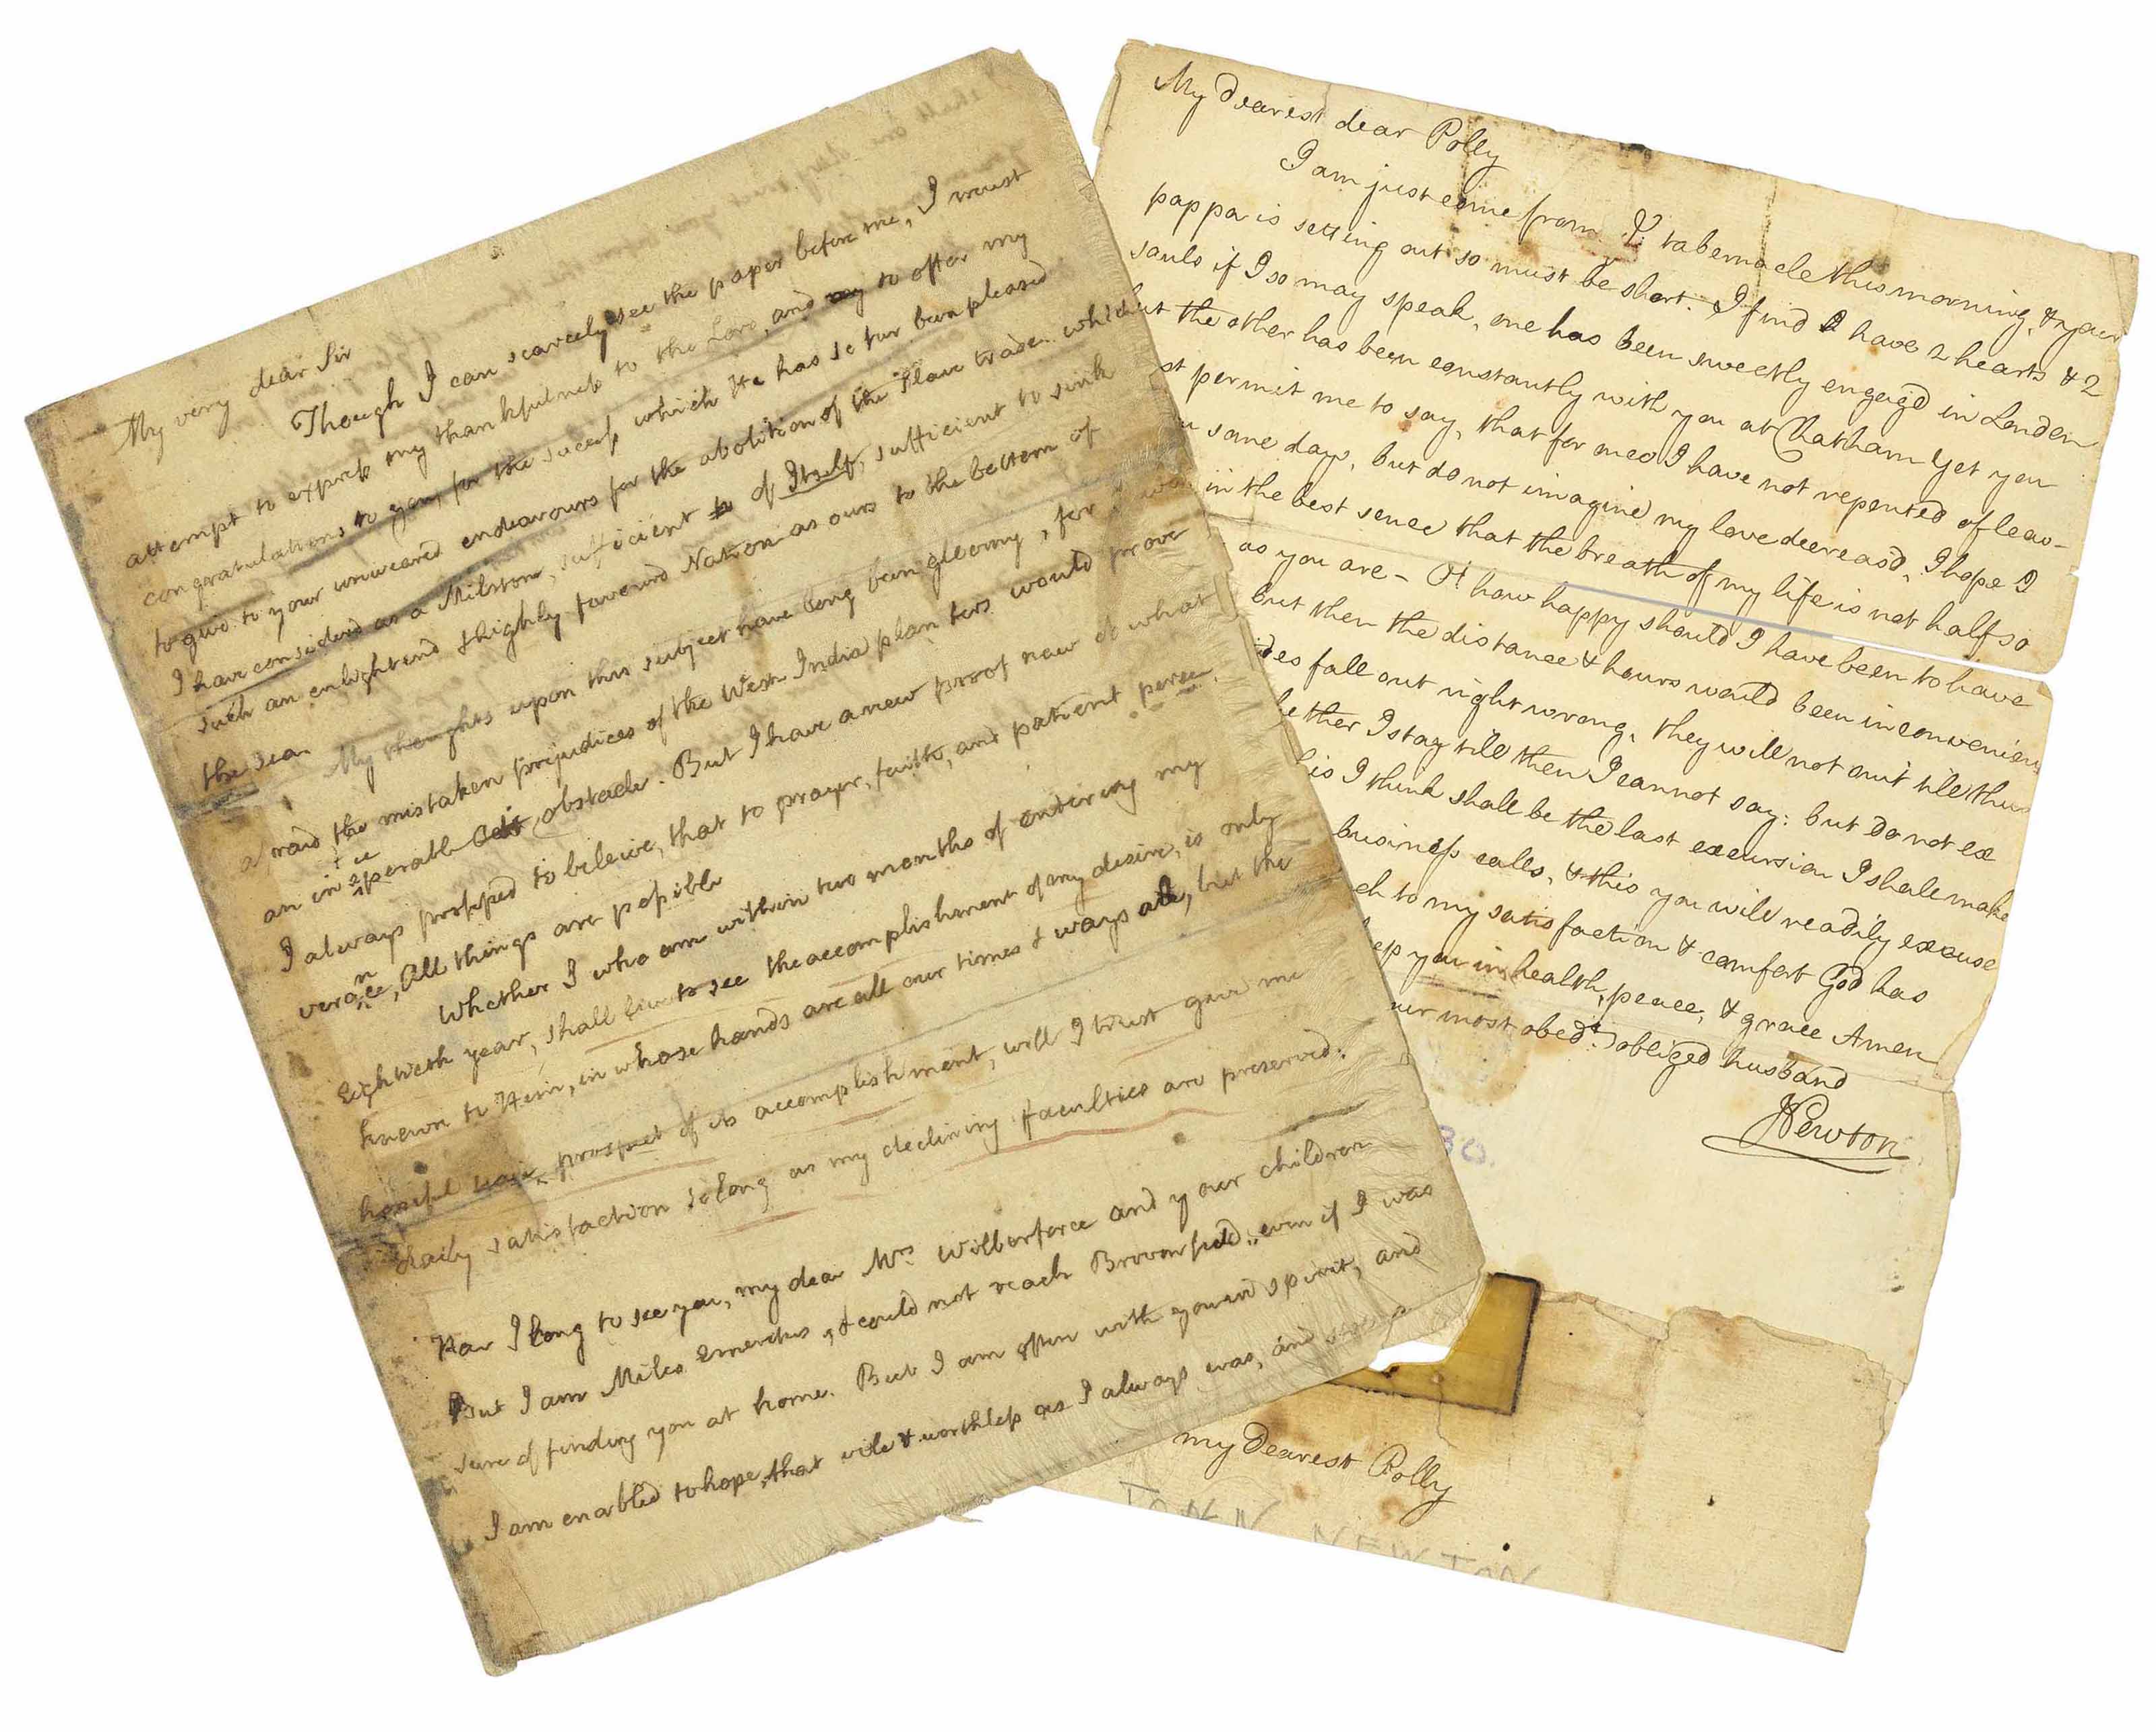 My very dear Sir
Though I can scarcely see the paper before me, I must
attempt to express my thankfulness to the Lord, and my to offer my
congratulations to you, for the success which He has so far been pleased
to give to your unweared endeavours for the abolition of the Slave trade which
I have considered as a Milstone, sufficient to of Itself, sufficient to sink
such an enlightend & highly favourd Nation as ours to the bottom of
the sea
My thoughts upon this subject have long been gloomy, for I was
afraid the mistaken prejudices of the West India planters would prove
an insuperable obstacle. But I have a new proof now of what
I always professed to beleive, that to prayer, faith, and patient perse
verance, All things are possible
Whether I who am within two months of entering my
Eightieth year, shall live to see the accomplishment of my desire, is only
known to Him, in whose hands are all our times & ways all, but the
hopeful prospect of its accomplishment, will I trust give me
daily satisfaction so long as my declining faculties are preserved.
How I long to see you, my dear Mrs Wilberforce and your children
But I am Miles emeritus, & could not reach Broomfield, even if I was
sure of finding you at home. But I am often with you in spirit, and
I am enabled to hope, that vile & worthless as I always was, and
My Dearest dear Polly
I am just come from Ye tabernacle this morning, & your
pappa is setting out so must be short. I find I have 2 hearts & 2
souls if I so may speak, one has been sweetly engag'd in London
but the other has been constantly with you at Chatham Yet you
st permit me to say, that for once I have not repented of leav-
u some days, but do not imagine my love decreas'd, I hope I
in the best sence that the breath of my life is not half so
as you are - O! how happy should I have been to have
but then the distance & hours would been inconvenient
ides fall out right wrong, they will not suit till thurs
hether I stay till then I cannot say: but do not ex
his I think shall be the last excursion I shall make
business calls, & this you will readily excuse
ch to my satisfaction & comfort God has
eep you in health, peace, & grace Amen
our most obedt. & obliged husband
JNewton
30.
my Dearest Polly
JOHN NEWTON